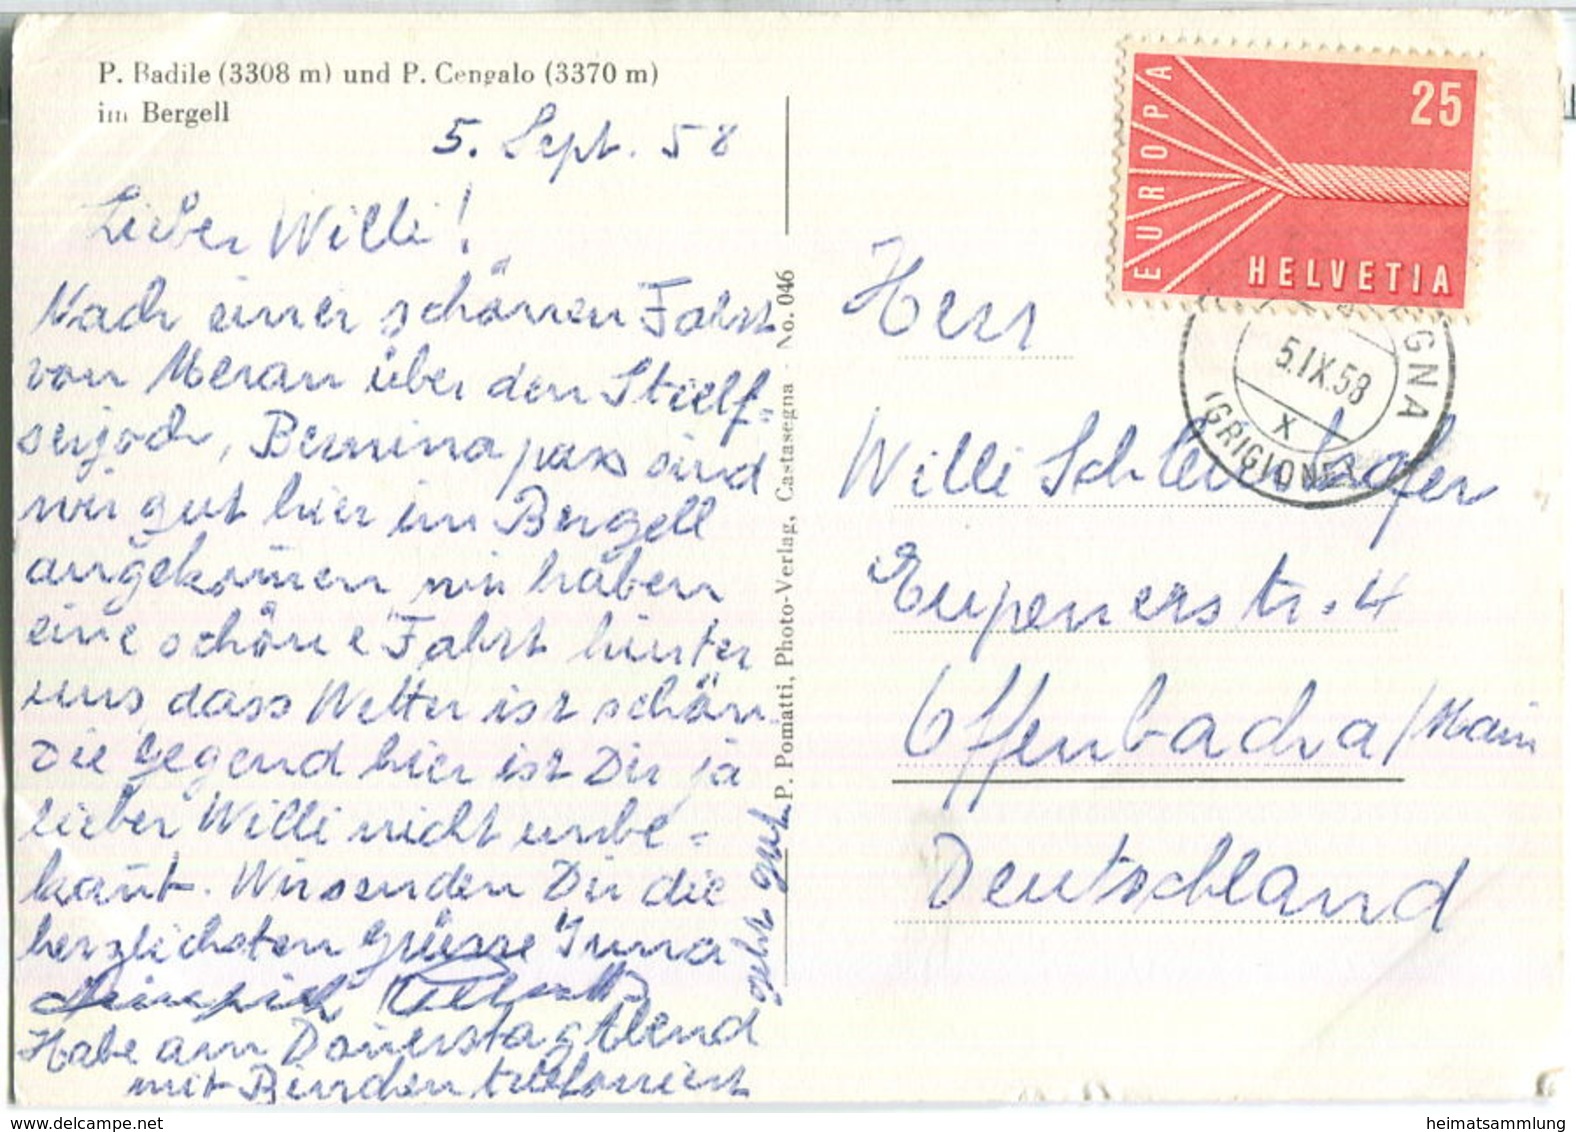 P. Badile (3308 m) und P. Cengalo (3370 m)
im Bergell
5. Sept. 58
Lieber Willi!
Nach einer schönen Fahrt
von Meran über den Stielf-
serjoch, Bernina pass sind
wir gut hier im Bergell
angekom̄en wir haben
eine schöne Fahrt hinter
uns, dass Wetter ist schön.
Die Gegend hier ist Dir ja
lieber Willi nicht unbe-
kan̄t. Wir senden Dir die
herzlichsten Grüsse Inna
Heinrich
Habe am Donnerstag Abend
mit Binden telefoniert
geht gut
P. Pomatti, Photo-Verlag, Castasegna · No. 046
EUROPA
25
HELVETIA
5.IX.58
X
EGNA
(GRIGIONE)
Herr
Willi Schleunhafer
Eupenerstr. 4
Offenbach a/Main
Deutschland
delcampe.net
heimatsammlung